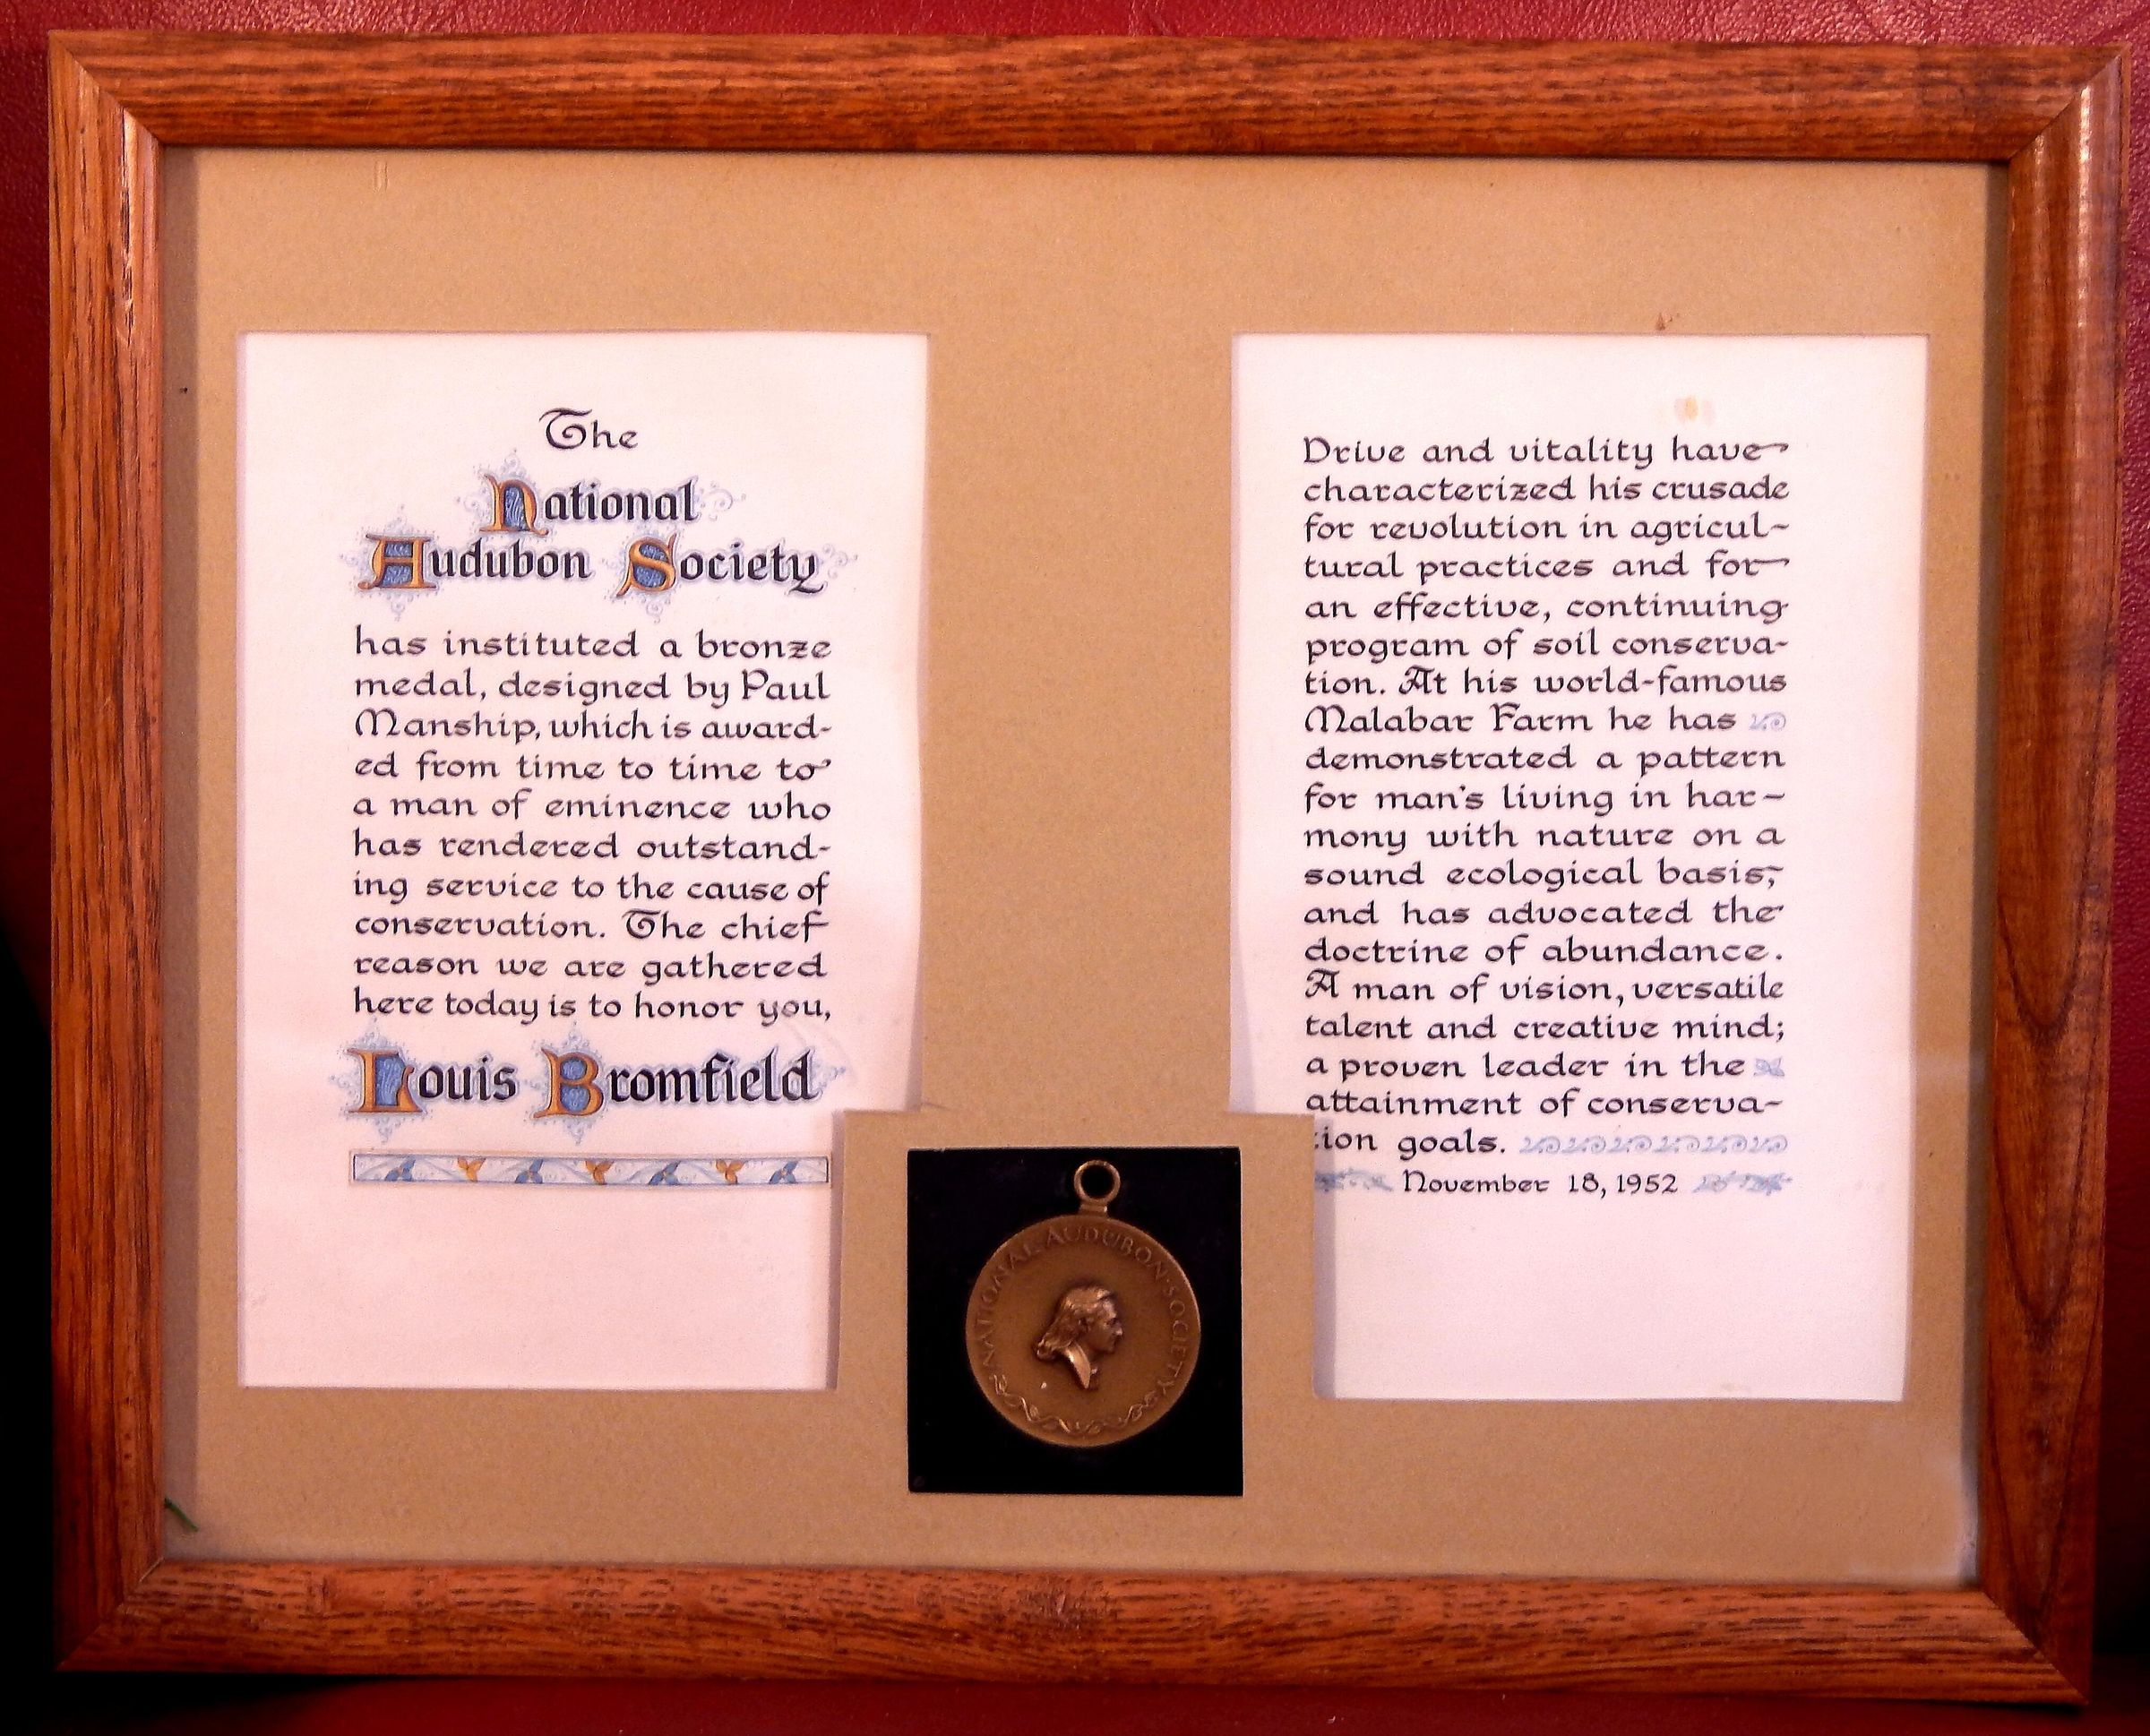 The
National
Audubon Society
has instituted a bronze
medal, designed by Paul
Manship, which is award-
ed from time to time to
a man of eminence who
has rendered outstand-
ing service to the cause of
conservation. The chief
reason we are gathered
here today is to honor you,
Louis Bromfield
Drive and vitality have
characterized his crusade
for revolution in agricul-
tural practices and for
an effective, continuing
program of soil conserva-
tion. At his world-famous
Malabar Farm he has
demonstrated a pattern
for man's living in har-
mony with nature on a
sound ecological basis,
and has advocated the
doctrine of abundance.
A man of vision, versatile
talent and creative mind;
a proven leader in the
attainment of conserva-
tion goals.
November 18, 1952
NATIONAL·AUDUBON·SOCIETY